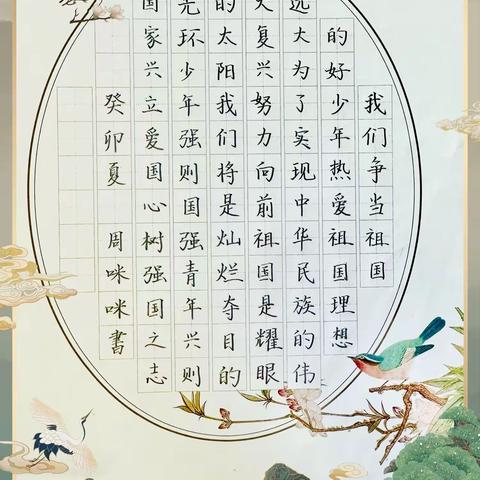 我们争当祖国
的好少年热爱祖国理想
远大为了实现中华民族的伟
大复兴努力向前祖国是耀眼
的太阳我们将是灿烂夺目的
光环少年强则国强青年兴则
国家兴立爱国心树强国之志
癸卯夏 周咪咪書